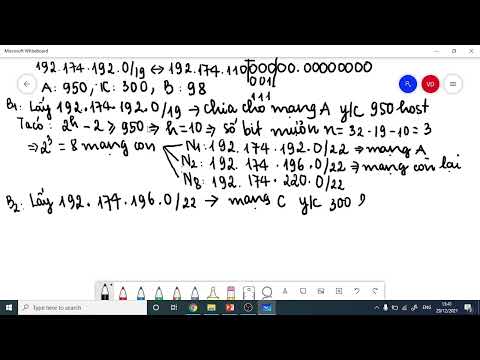 Microsoft Whiteboard
192.174.192.0/19 ↔ 192.174.110|00000.00000000
A: 950, C: 300, B: 98
001
111
B1: Lấy 192.174.192.0/19 → chia cho mạng A y/c 950 host
Ta có: 2^h - 2 ≥ 950 ⇒ h = 10 ⇒ số bit mượn n = 32 - 19 - 10 = 3
⇒ 2^3 = 8 mạng con
N1: 192.174.192.0/22 ⇒ mạng A
N2: 192.174.196.0/22 ⇒ mạng còn lại
N8: 192.174.220.0/22
B2: Lấy 192.174.196.0/22 → mạng C y/c 300
VD
Type here to search
ENG
20/12/2021